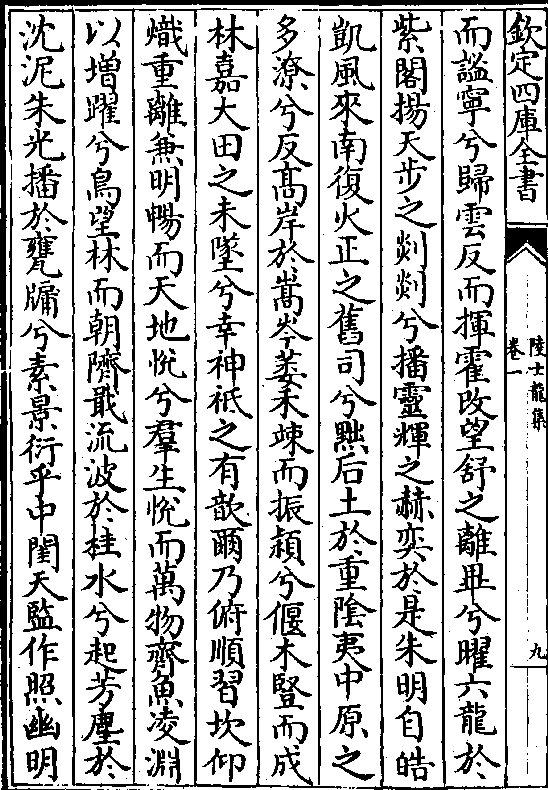 欽定四庫全書
陸士龍集
卷一
九
而謐寧兮歸雲反而揮霍改望舒之離畢兮曜六龍於
紫閣揚天步之剡剡兮播靈輝之赫奕於是朱明自皓
凱風來南復火正之舊司兮黜后土於重陰夷中原之
多潦兮反髙岸於嵩岑萎禾竦而振穎兮偃木豎而成
林嘉大田之未墜兮幸神祇之有歆爾乃俯順習坎仰
熾重離兼明暢而天地恱兮羣生恱而萬物齊魚凌淵
以増躍兮鳥望林而朝隮戢流波於桂水兮起芳塵於
沈泥朱光播於甕牖兮素景衍乎中閨天監作照幽明